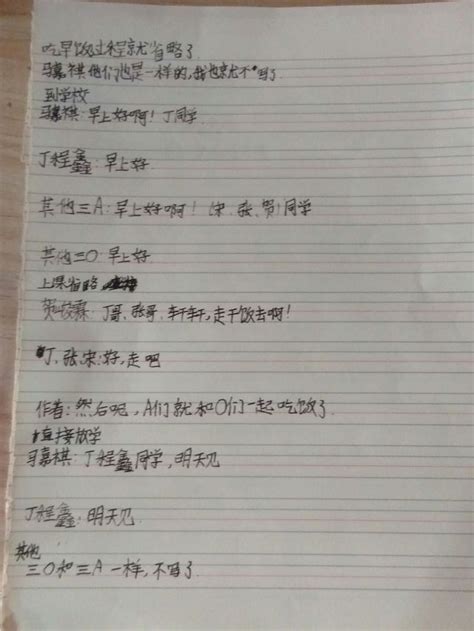 吃早饭过程就省略了
马嘉祺他们也是一样的,我也就不写了
到学校
马嘉祺:早上好啊!丁同学
丁程鑫:早上好
其他三A:早上好啊!(宋、张、贺)同学
其他三O:早上好
上课省略
贺峻霖:丁哥、张哥、轩轩,走干饭去啊!
丁、张、宋:好,走吧
作者:然后呢,A们就和O们一起吃饭了
直接放学
马嘉祺:丁程鑫同学,明天见
丁程鑫:明天见
其他
三O和三A一样,不写了